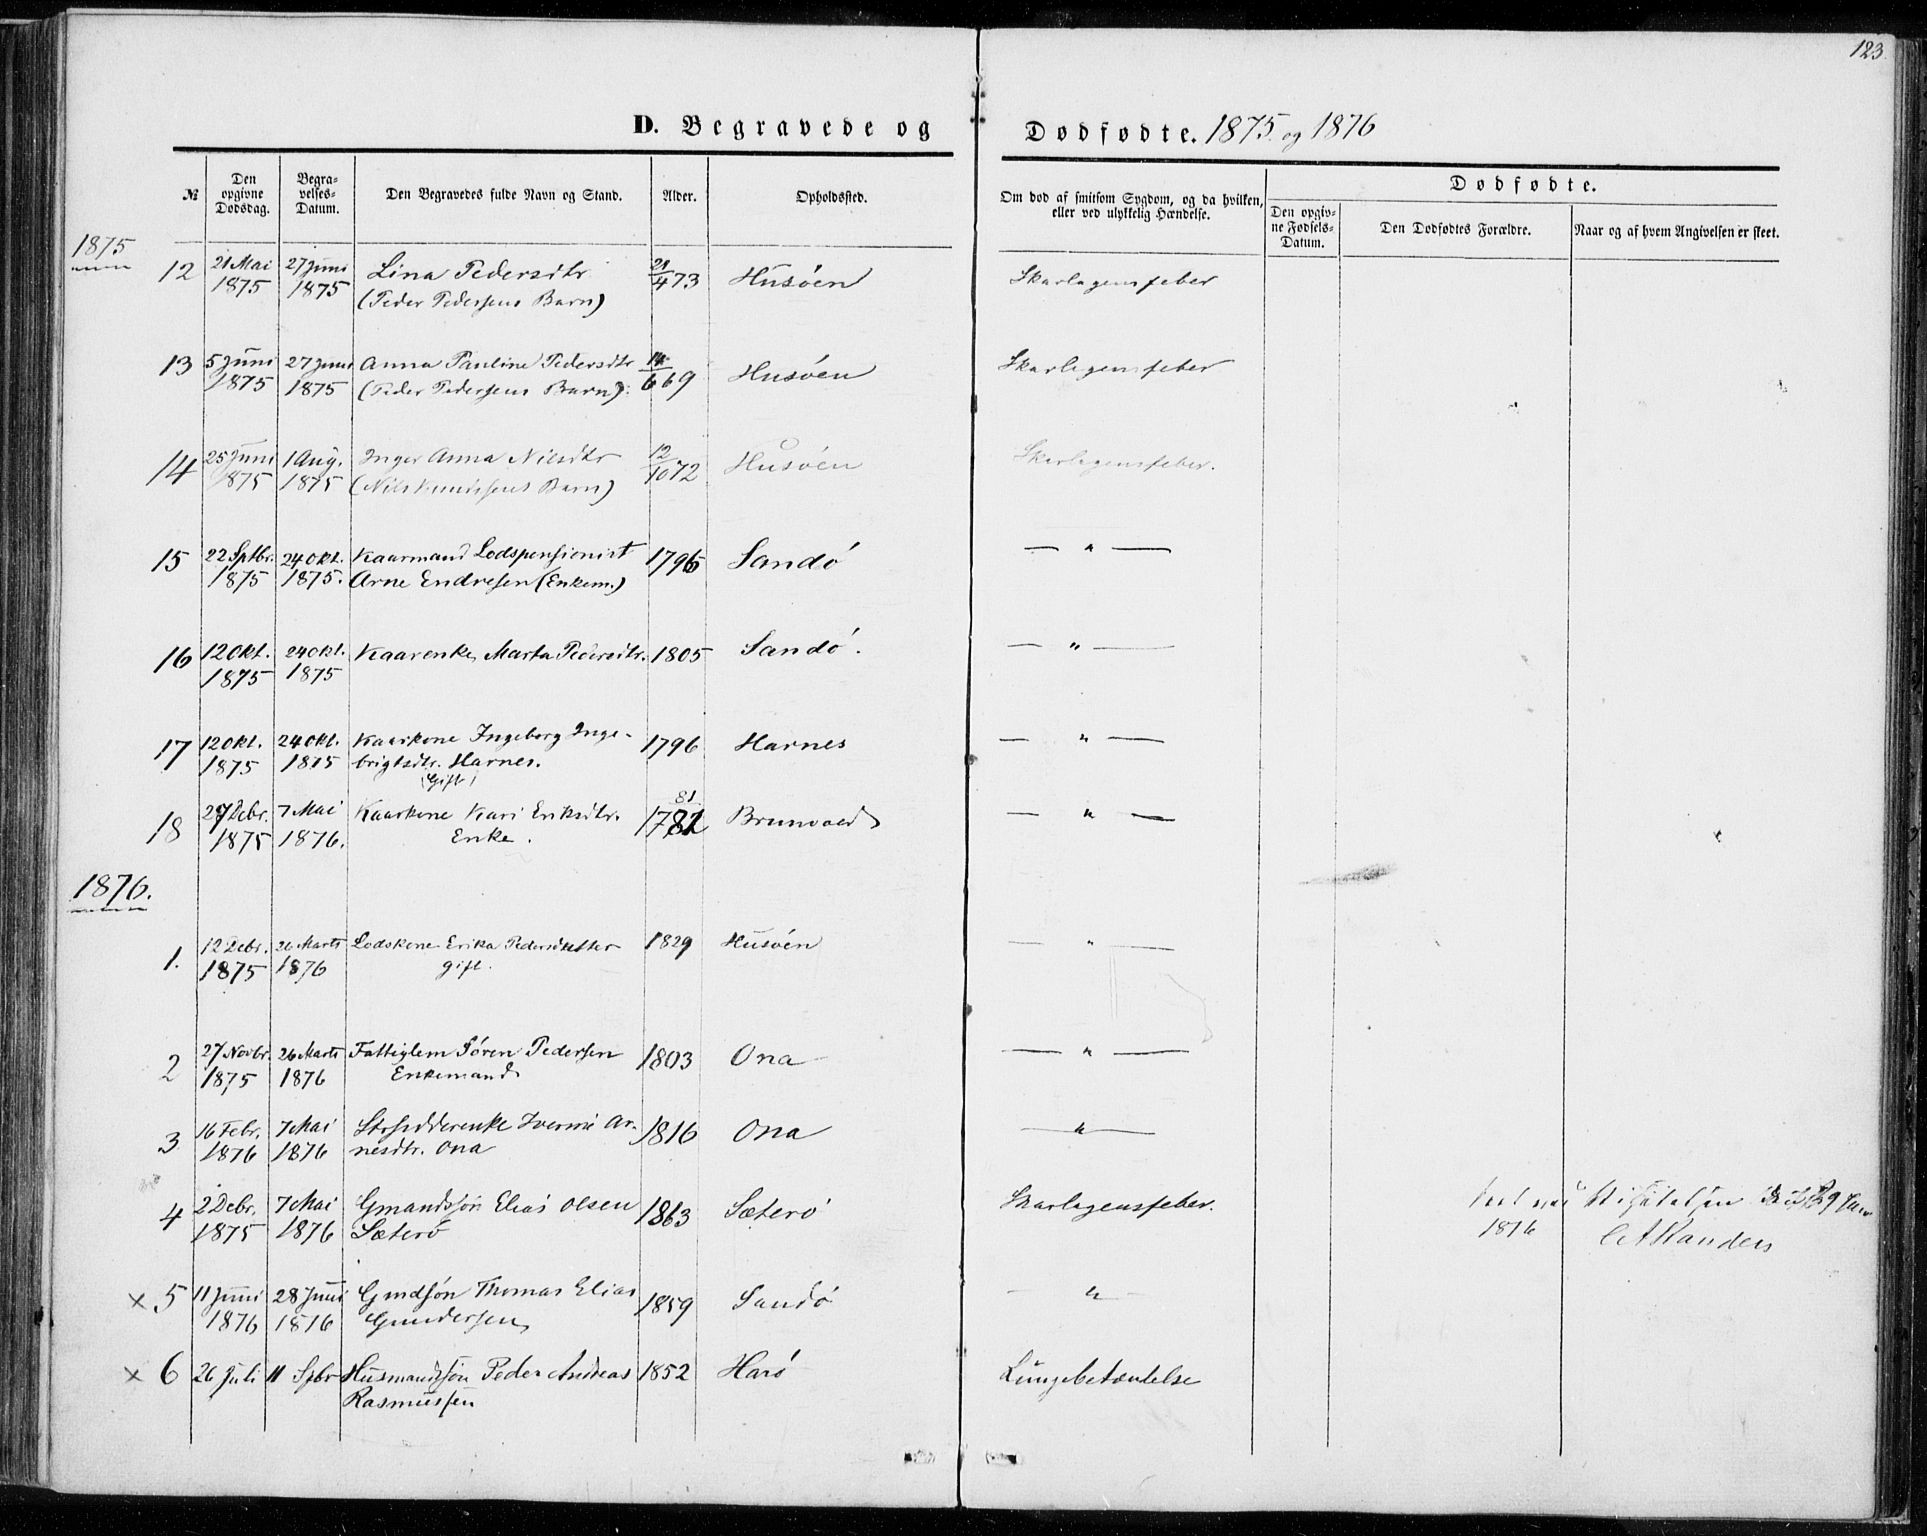 123
D. Begravede og Dødfødte. 1875 og 1876
№ Den opgivne Dødsdag. Begravelses-Datum. Den Begravedes fulde Navn og Stand. Alder. Opholdssted. Om død af smitsom Sygdom, og da hvilken, eller ved ulykkelig Hændelse. Dødfødte.
Den opgivne Fødsels-Datum. Den Dødfødtes Forældre. Naar og af hvem Angivelsen er skeet.
1875
12 21 Mai 27 Juni Lina Pedersdtr 21/4 73 Husöen Skarlagensfeber
1875 1875 (Peder Pedersens Barn)
13 5 Juni 27 Juni Anna Pauline Pedersdtr 14/6 69 Husöen Skarlagensfeber
1875 1875 (Peder Pedersens Barn)
14 25 Juni 1 Aug. Inger Anna Nilsdtr 12/10 72 Husöen Skarlagensfeber.
1875 1875 (Nils Knudsens Barn)
15 22 Sptbr. 24 Okt. Kaarmand Lodspensionist 1796 Sandö — " —
1875 1875. Arne Endresen (Enkem.)
16 12 Okt. 24 Okt. Kaarenke Marta Pedersdtr. 1805 Sandö. — " —
1875 1875
17 12 Okt. 24 Okt. Kaarkone Ingeborg Inge- 1796 Harnes — " —
1875 1875 brigtsdtr. Harnes.
(Gift)
81
18 27 Debr. 7 Mai Kaarkone Kari Eriksdtr. 1782 Brunvoed — " —
1875 1876. Enke.
1876.
1. 12 Debr. 26 Marts Lodskone Erika Pedersdatter 1829 Husöen — " —
1875 1876 gift.
2 27 Novbr. 26 Marts Fattiglem Sören Pedersen 1803 Ona — " —
1875 1876 Enkemand
3 16 Febr. 7 Mai Strsidderenke Iverine Ar- 1816 Ona — " —
1876 1876 nesdtr. Ona
4 2 Debr. 7 Mai Gmandssön Elias Olsen 1863 Sæterö Skarlagensfeber.
1875 1876 Sæterö
Seet ved Visitatsen
1876 CARanders
× 5 11 Juni 28 Juni Gmdsön Thomas Elias 1859 Sandö — " —
1876 1876 Gundersen
× 6 26 Juli 11 Spbr Husmandssön Peder Andreas 1852 Harö Lungebetændelse
Rasmussen